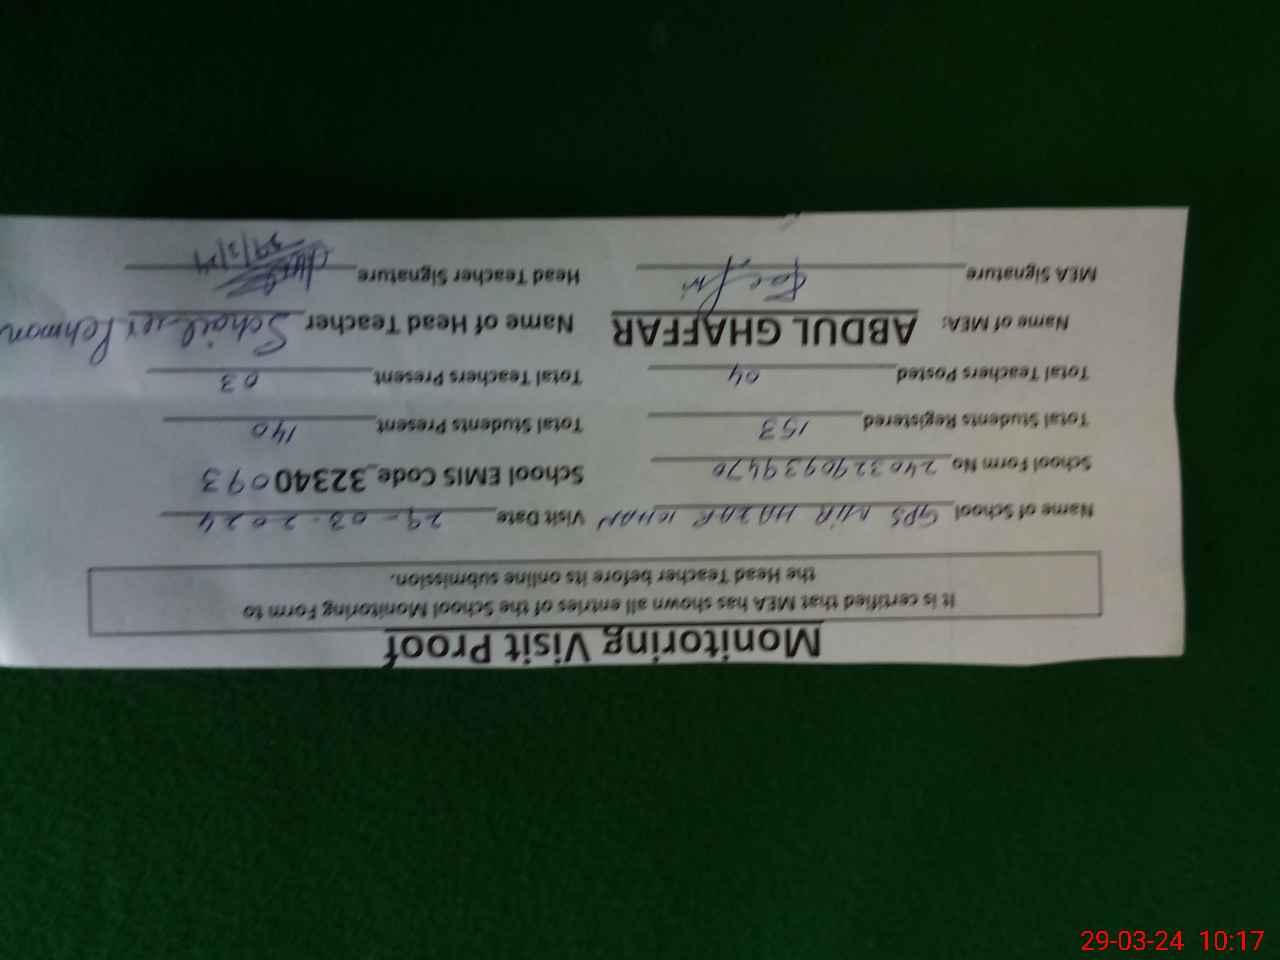 Monitoring Visit Proof
It is certified that MEA has shown all entries of the School Monitoring Form to
the Head Teacher before its online submission.
Name of School GPS MIR HAZAR KHAN Visit Date 29-03-2024
School Form No 2403290939470 School EMIS Code_32340093
Total Students Registered 153 Total Students Present 140
Total Teachers Posted 04 Total Teachers Present 03
Name of MEA: ABDUL GHAFFAR Name of Head Teacher Rehman
MEA Signature Head Teacher Signature 29/3/24
29-03-24 10:17